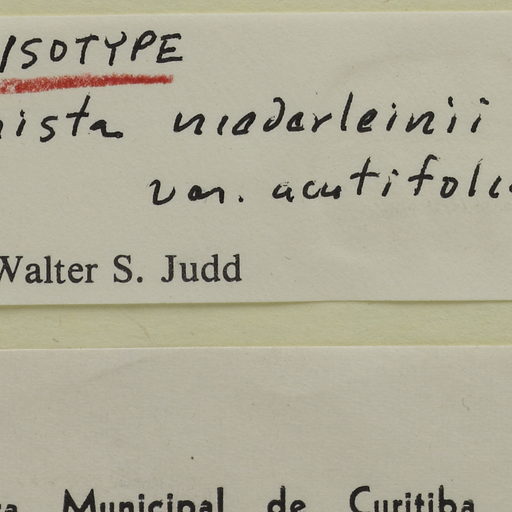 ISOTYPE
nista niederleinii
var. acutifoli
Walter S. Judd
ra Municipal de Curitiba